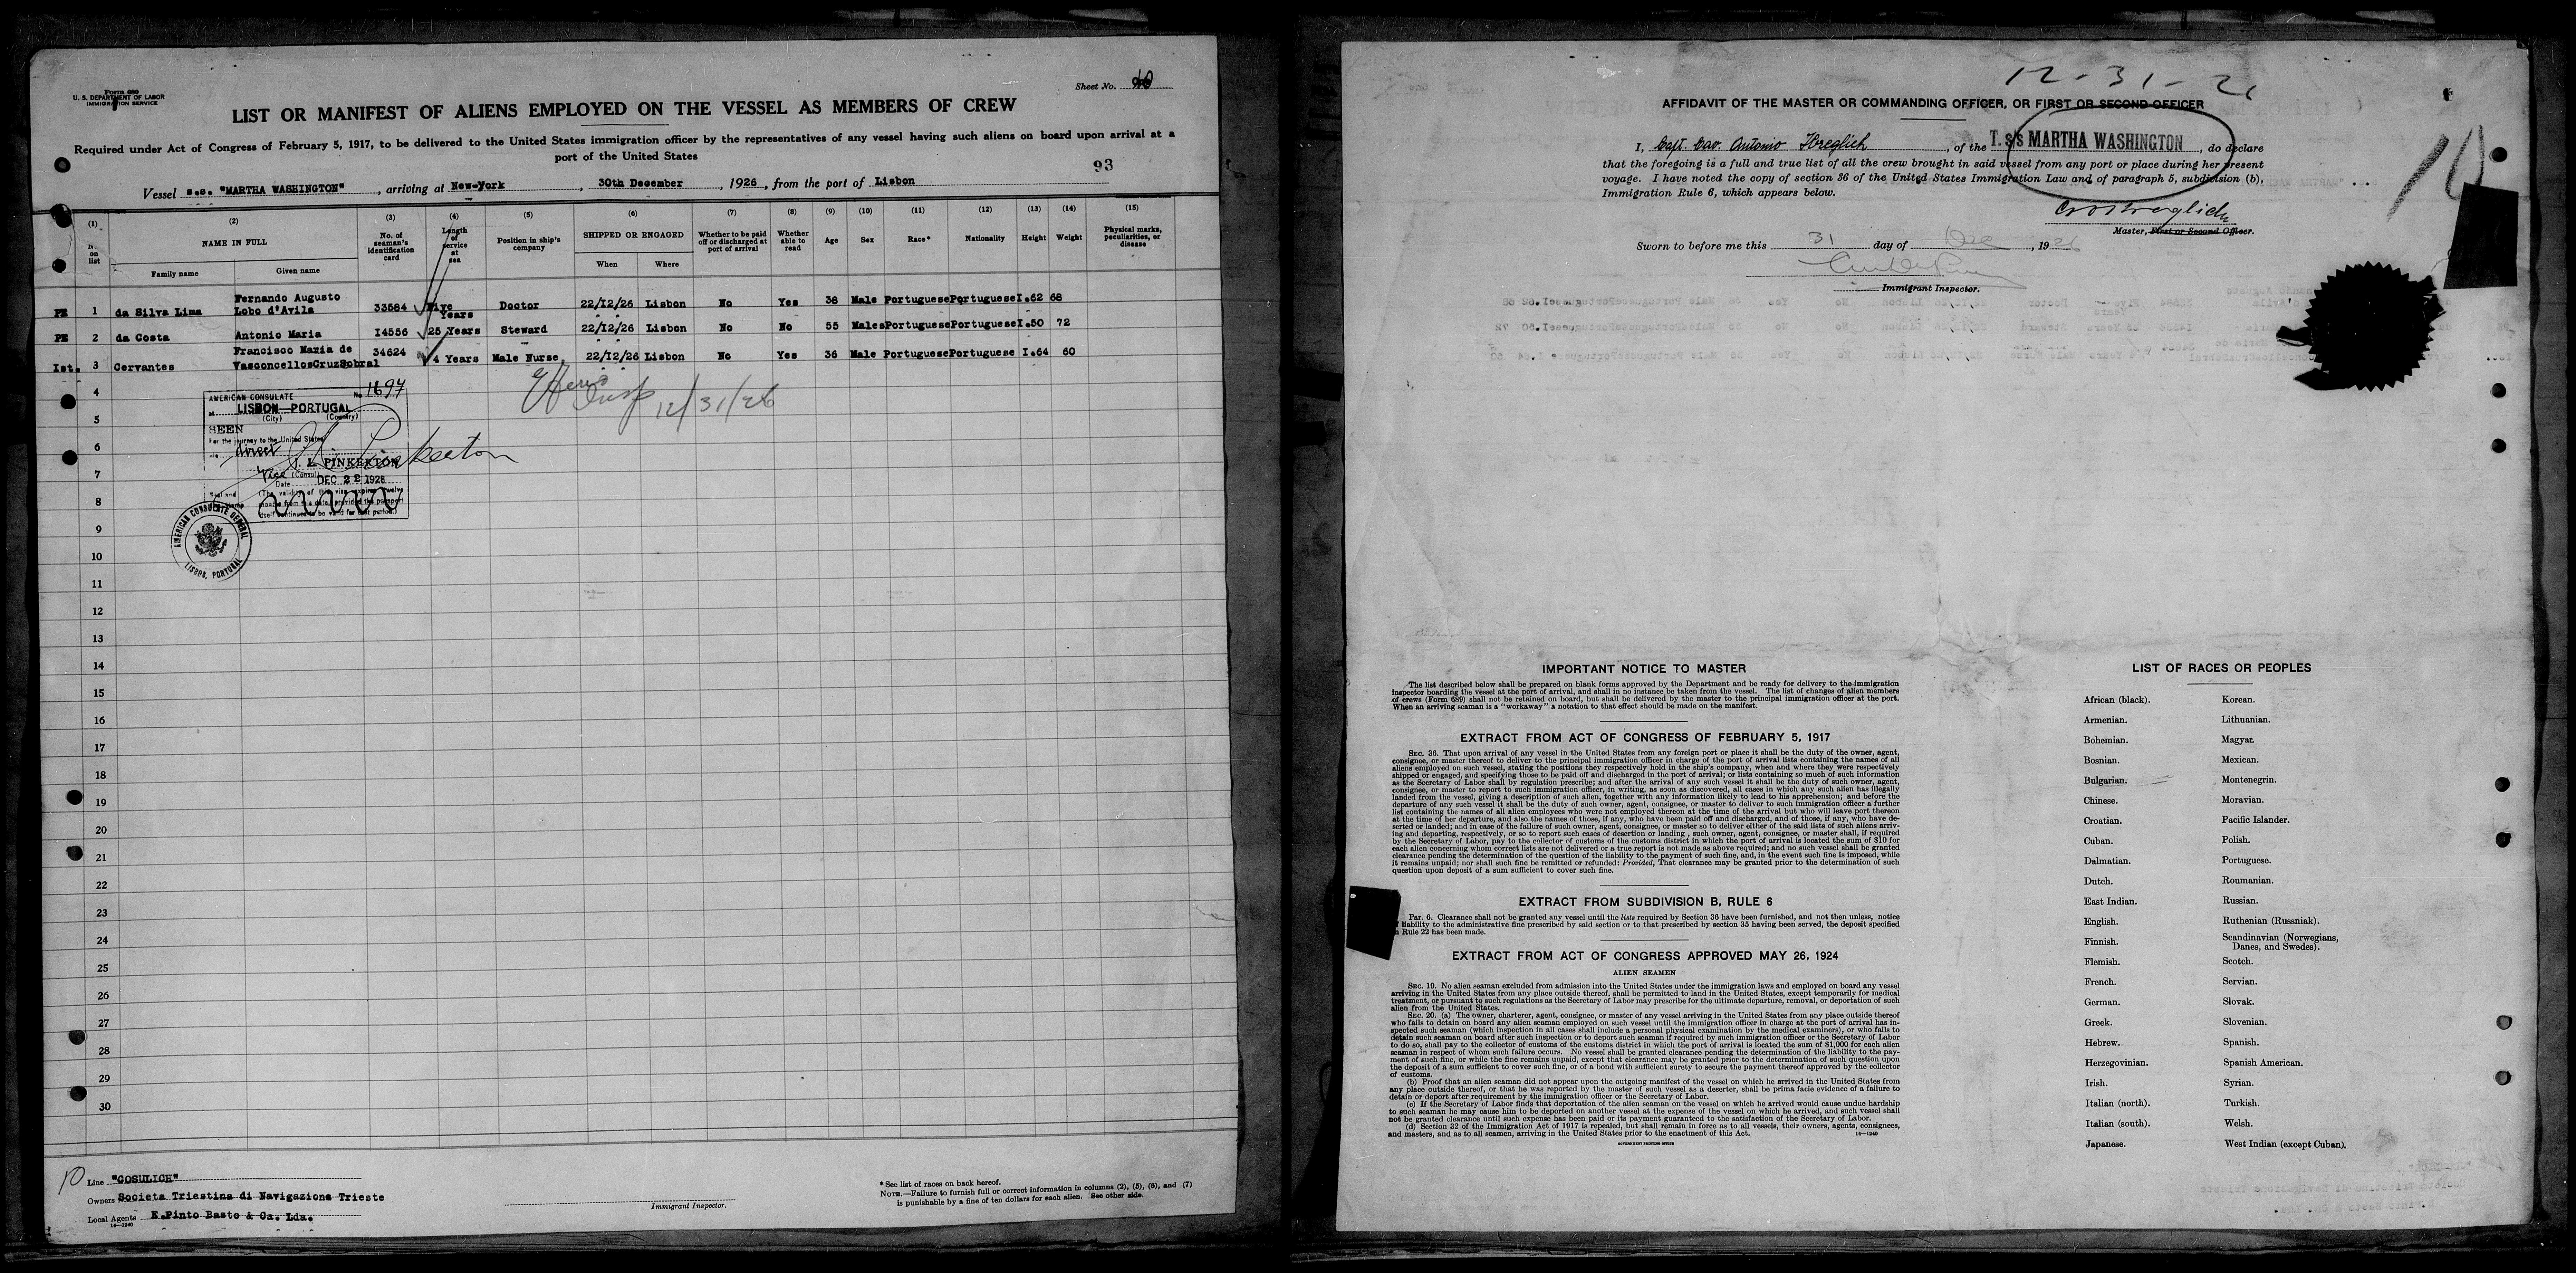 Form 680
U. S. DEPARTMENT OF LABOR
IMMIGRATION SERVICE
Sheet No.
LIST OR MANIFEST OF ALIENS EMPLOYED ON THE VESSEL AS MEMBERS OF CREW
Required under Act of Congress of February 5, 1917, to be delivered to the United States immigration officer by the representatives of any vessel having such aliens on board upon arrival at a
port of the United States
93
Vessel s.s. "MARTHA WASHINGTON", arriving at New-York, 30th December, 1926, from the port of Lisbon
(1) (2) (3) (4) (5) (6) (7) (8) (9) (10) (11) (12) (13) (14) (15)
No. on list
NAME IN FULL
Family name
Given name
No. of seaman's identification card
Length of service at sea
Position in ship's company
SHIPPED OR ENGAGED
When
Where
Whether to be paid off or discharged at port of arrival
Whether able to read
Age
Sex
Race*
Nationality
Height
Weight
Physical marks, peculiarities, or disease
PE 1 da Silva Lima Fernando Augusto Lobo d'Avila 33584 Five Years Doctor 22/12/26 Lisbon No Yes 38 Male Portuguese Portuguese I.62 68
PE 2 da Costa Antonio Maria I4556 25 Years Steward 22/12/26 Lisbon No No 55 Males Portuguese Portuguese I.50 72
Ist. 3 Cervantes Francisco Maria de VasconcellosCruzSobral 34624 4 Years Male Nurse 22/12/26 Lisbon No Yes 36 Male Portuguese Portuguese I.64 60
4
5
6
7
8
9
10
11
12
13
14
15
16
17
18
19
20
21
22
23
24
25
26
27
28
29
30
AMERICAN CONSULATE No. 1697
at LISBON—PORTUGAL
(City) (Country)
SEEN
For the journey to the United States
direct
J. L. PINKERTON
Vice (Consul)
Date DEC 22 1926
AMERICAN CONSULATE GENERAL
LISBON, PORTUGAL
Insp 12/31/26
10
Line "COSULICH"
Owners Societa Triestina di Navigazione Trieste
Local Agents E.Pinto Basto & Ca. Lda.
14—1240
Immigrant Inspector.
* See list of races on back hereof.
NOTE.—Failure to furnish full or correct information in columns (2), (5), (6), and (7)
is punishable by a fine of ten dollars for each alien. See other side.
12-31-26
AFFIDAVIT OF THE MASTER OR COMMANDING OFFICER, OR FIRST OR SECOND OFFICER
I, Capt. Cav. Antonio, of the T. s/s MARTHA WASHINGTON, do declare
that the foregoing is a full and true list of all the crew brought in said vessel from any port or place during her present
voyage. I have noted the copy of section 36 of the United States Immigration Law and of paragraph 5, subdivision (b),
Immigration Rule 6, which appears below.
Master, First or Second Officer.
Sworn to before me this 31 day of Dec, 1926
Immigrant Inspector.
IMPORTANT NOTICE TO MASTER
The list described below shall be prepared on blank forms approved by the Department and be ready for delivery to the immigration
inspector boarding the vessel at the port of arrival, and shall in no instance be taken from the vessel. The list of changes of alien members
of crews (Form 689) shall not be retained on board, but shall be delivered by the master to the principal immigration officer at the port.
When an arriving seaman is a "workaway" a notation to that effect should be made on the manifest.
EXTRACT FROM ACT OF CONGRESS OF FEBRUARY 5, 1917
SEC. 36. That upon arrival of any vessel in the United States from any foreign port or place it shall be the duty of the owner, agent,
consignee, or master thereof to deliver to the principal immigration officer in charge of the port of arrival lists containing the names of all
aliens employed on such vessel, stating the positions they respectively hold in the ship's company, when and where they were respectively
shipped or engaged, and specifying those to be paid off and discharged in the port of arrival; or lists containing so much of such information
as the Secretary of Labor shall by regulation prescribe; and after the arrival of any such vessel it shall be the duty of such owner, agent,
consignee, or master to report to such immigration officer, in writing, as soon as discovered, all cases in which any such alien has illegally
landed from the vessel, giving a description of such alien, together with any information likely to lead to his apprehension; and before the
departure of any such vessel it shall be the duty of such owner, agent, consignee, or master to deliver to such immigration officer a further
list containing the names of all alien employees who were not employed thereon at the time of the arrival but who will leave port thereon
at the time of her departure, and also the names of those, if any, who have been paid off and discharged, and of those, if any, who have de-
serted or landed; and in case of the failure of such owner, agent, consignee, or master so to deliver either of the said lists of such aliens arriv-
ing and departing, respectively, or so to report such cases of desertion or landing, such owner, agent, consignee, or master shall, if required
by the Secretary of Labor, pay to the collector of customs of the customs district in which the port of arrival is located the sum of $10 for
each alien concerning whom correct lists are not delivered or a true report is not made as above required; and no such vessel shall be granted
clearance pending the determination of the question of the liability to the payment of such fine, and, in the event such fine is imposed, while
it remains unpaid; nor shall such fine be remitted or refunded: Provided, That clearance may be granted prior to the determination of such
question upon deposit of a sum sufficient to cover such fine.
EXTRACT FROM SUBDIVISION B, RULE 6
PAR. 6. Clearance shall not be granted any vessel until the lists required by Section 36 have been furnished, and not then unless, notice
liability to the administrative fine prescribed by said section or to that prescribed by section 35 having been served, the deposit specified
Rule 22 has been made.
EXTRACT FROM ACT OF CONGRESS APPROVED MAY 26, 1924
ALIEN SEAMEN
SEC. 19. No alien seaman excluded from admission into the United States under the immigration laws and employed on board any vessel
arriving in the United States from any place outside thereof, shall be permitted to land in the United States, except temporarily for medical
treatment, or pursuant to such regulations as the Secretary of Labor may prescribe for the ultimate departure, removal, or deportation of such
alien from the United States.
SEC. 20. (a) The owner, charterer, agent, consignee, or master of any vessel arriving in the United States from any place outside thereof
who fails to detain on board any alien seaman employed on such vessel until the immigration officer in charge at the port of arrival has in-
spected such seaman (which inspection in all cases shall include a personal physical examination by the medical examiners), or who fails to
detain such seaman on board after such inspection or to deport such seaman if required by such immigration officer or the Secretary of Labor
to do so, shall pay to the collector of customs of the customs district in which the port of arrival is located the sum of $1,000 for each alien
seaman in respect of whom such failure occurs. No vessel shall be granted clearance pending the determination of the liability to the pay-
ment of such fine, or while the fine remains unpaid, except that clearance may be granted prior to the determination of such question upon
the deposit of a sum sufficient to cover such fine, or of a bond with sufficient surety to secure the payment thereof approved by the collector
of customs.
(b) Proof that an alien seaman did not appear upon the outgoing manifest of the vessel on which he arrived in the United States from
any place outside thereof, or that he was reported by the master of such vessel as a deserter, shall be prima facie evidence of a failure to
detain or deport after requirement by the immigration officer or the Secretary of Labor.
(c) If the Secretary of Labor finds that deportation of the alien seaman on the vessel on which he arrived would cause undue hardship
to such seaman he may cause him to be deported on another vessel at the expense of the vessel on which he arrived, and such vessel shall
not be granted clearance until such expense has been paid or its payment guaranteed to the satisfaction of the Secretary of Labor.
(d) Section 32 of the Immigration Act of 1917 is repealed, but shall remain in force as to all vessels, their owners, agents, consignees,
and masters, and as to all seamen, arriving in the United States prior to the enactment of this Act.
14—1240
GOVERNMENT PRINTING OFFICE
LIST OF RACES OR PEOPLES
African (black).
Armenian.
Bohemian.
Bosnian.
Bulgarian.
Chinese.
Croatian.
Cuban.
Dalmatian.
Dutch.
East Indian.
English.
Finnish.
Flemish.
French.
German.
Greek.
Hebrew.
Herzegovinian.
Irish.
Italian (north).
Italian (south).
Japanese.
Korean.
Lithuanian.
Magyar.
Mexican.
Montenegrin.
Moravian.
Pacific Islander.
Polish.
Portuguese.
Roumanian.
Russian.
Ruthenian (Russniak).
Scandinavian (Norwegians,
Danes, and Swedes).
Scotch.
Servian.
Slovak.
Slovenian.
Spanish.
Spanish American.
Syrian.
Turkish.
Welsh.
West Indian (except Cuban).